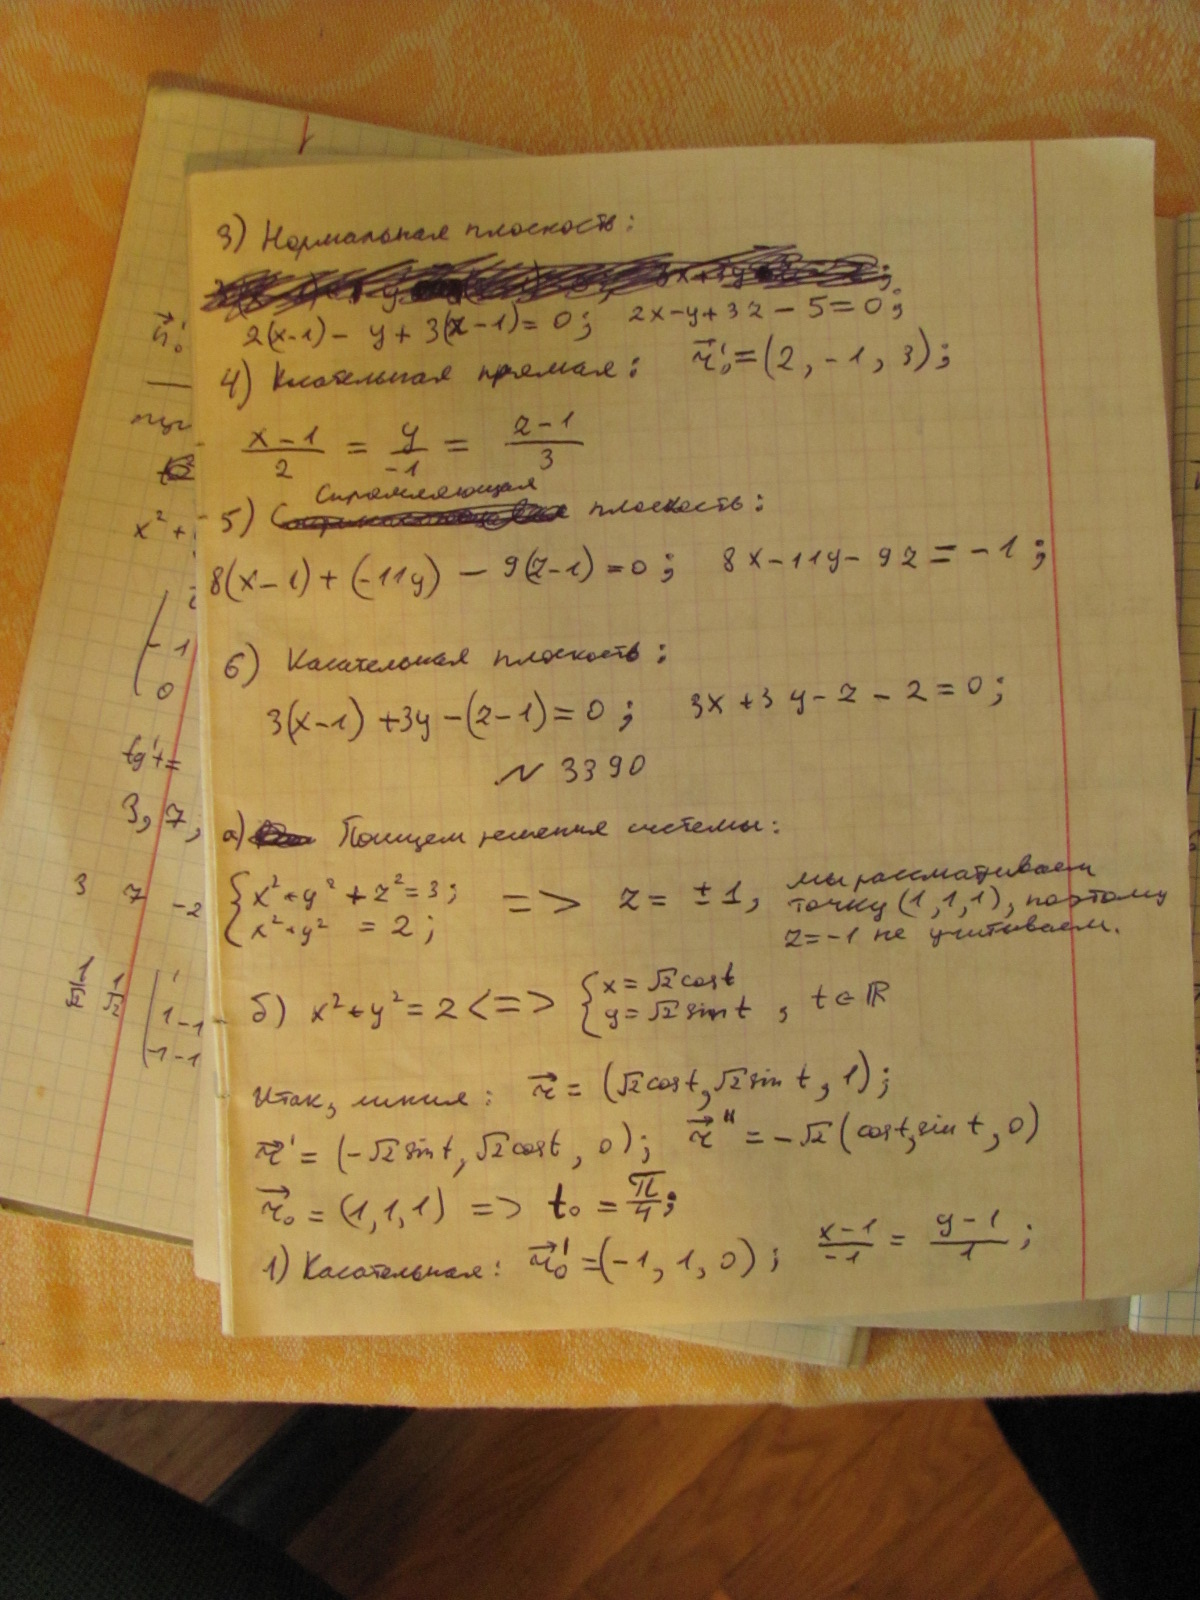 3) Нормальная плоскость:
2(x-1) - y + 3(x-1) = 0; 2x-y+3z-5=0;
4) Касательная прямая: r⃗₀' = (2, -1, 3);
(x-1)/2 = y/-1 = (z-1)/3
5) Спрямляющая плоскость:
8(x-1) + (-11y) - 9(z-1) = 0; 8x-11y-9z = -1;
6) Касательная плоскость:
3(x-1) + 3y - (z-1) = 0; 3x+3y-z-2=0;
N 3390
а) Поищем решения системы:
{ x²+y²+z²=3; x²+y² = 2; => z = ±1, мы рассматриваем
точку (1,1,1), поэтому
z=-1 не учитываем.
б) x²+y²=2 <=> { x=√2cost y=√2sint, t∈ℝ
Итак, линия: r⃗ = (√2cost, √2sint, 1);
r⃗' = (-√2sint, √2cost, 0); r⃗'' = -√2(cost, sint, 0)
r⃗₀ = (1,1,1) => t₀ = π/4;
1) Касательная: r⃗₀' = (-1, 1, 0); (x-1)/-1 = (y-1)/1;
x²+
-1
0
3, 7,
3 7 -2
1 -1
-1 -1